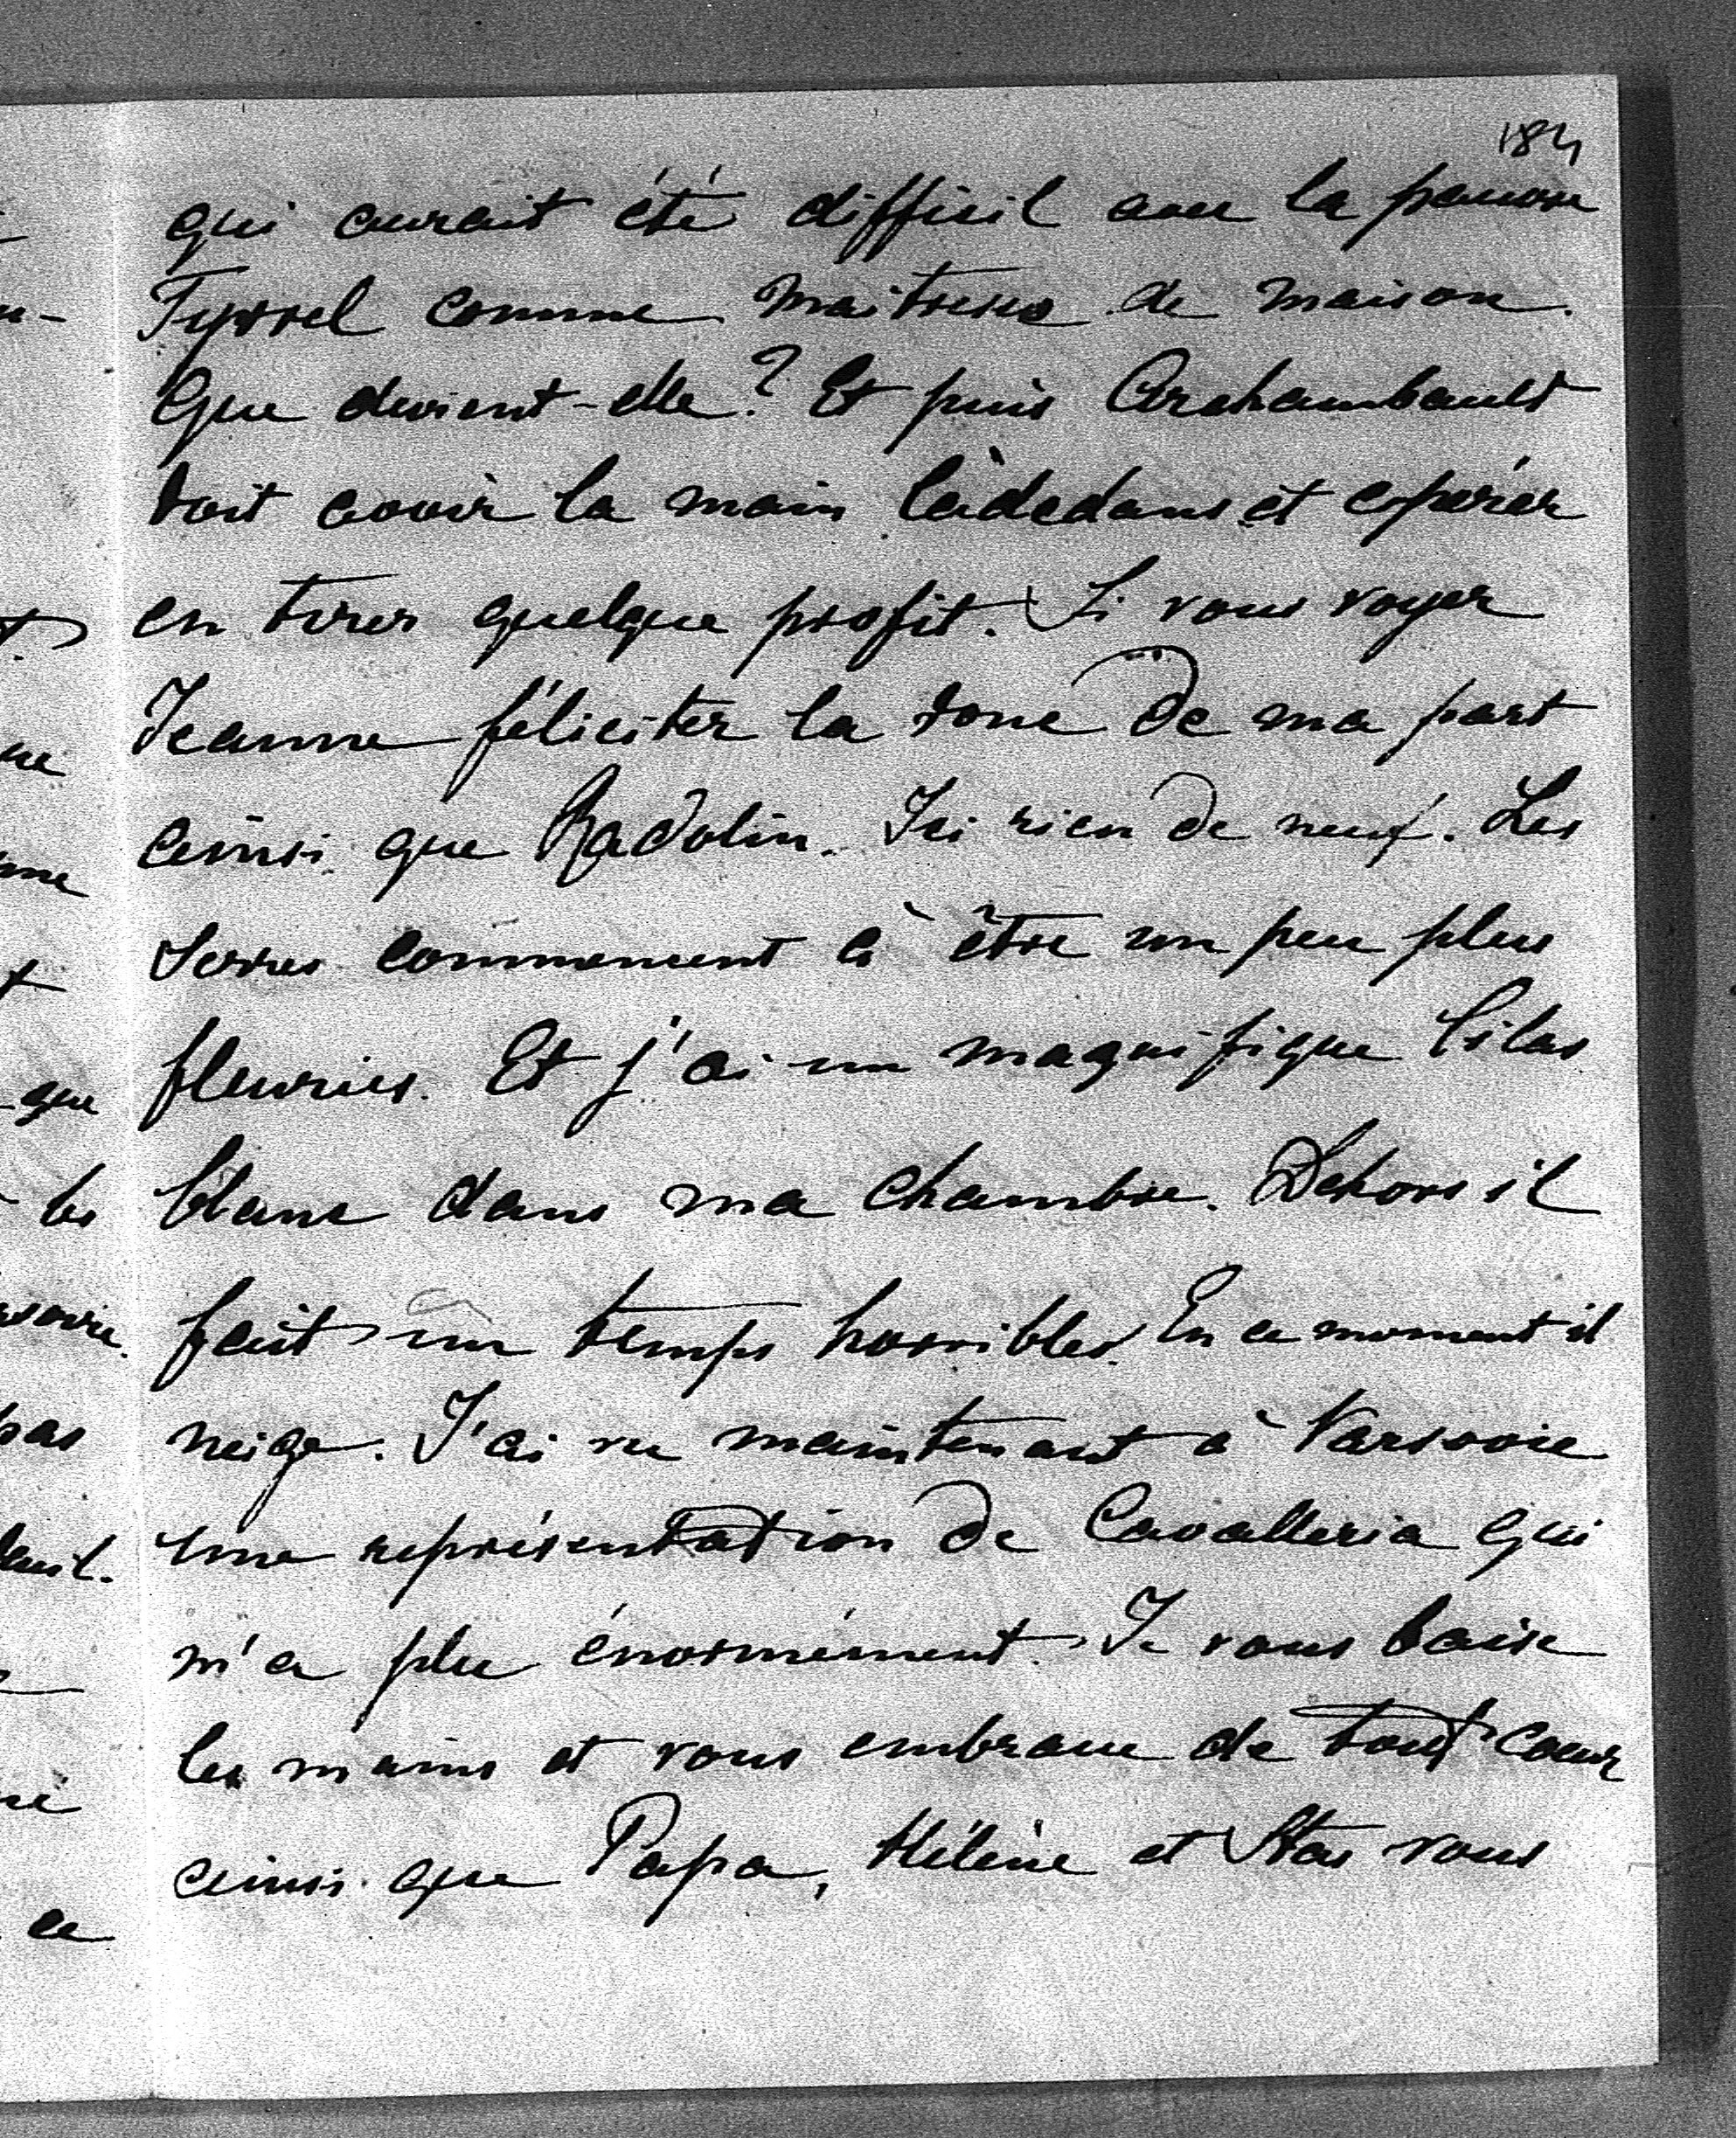 184
qui aurait été difficil avec la pauvre
Tyrrel comme maitresse de maison.
Que devient-elle? Et puis Archambault
doit avoir la main làdedans et espérer
en tirer quelque profit. Si vous voyez
Jeanne féliciter la donc de ma part
ainsi que Radolin. Ici rien de neuf. Les
serres commencent à être un peu plus
fleuries. Et j'ai un magnifique lilas
blanc dans ma chambre. Dehors il
fait un temps horrible. En ce moment il
neige. J'ai vu maintenant à Varsovie
une représentation de Cavalleria qui
m'a plu énormément. Je vous baise
les mains et vous embrasse de tout coeur
ainsi que Papa, Hélène et Stas vous